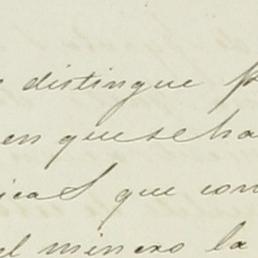 distingue
en que se ha
icas que con
el minero la